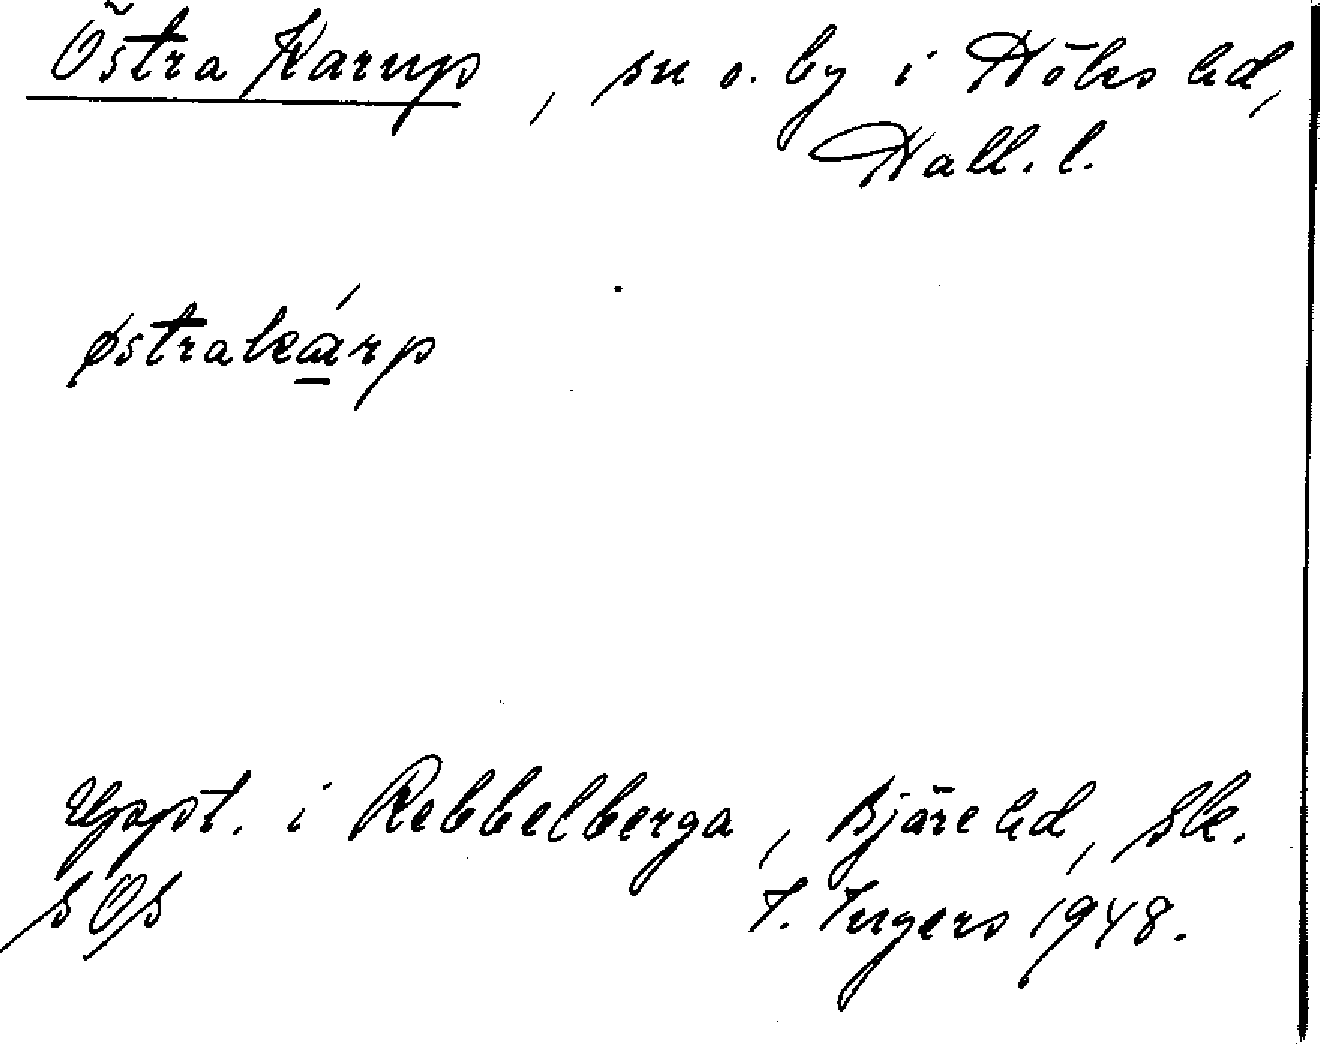 Östra Karup, sn o. by i Höks hd,
Hall. l.
østrakárp
Uppt. i Rebbelberga, Bjäre hd, Sk.
SOS I. Ingers 1948.